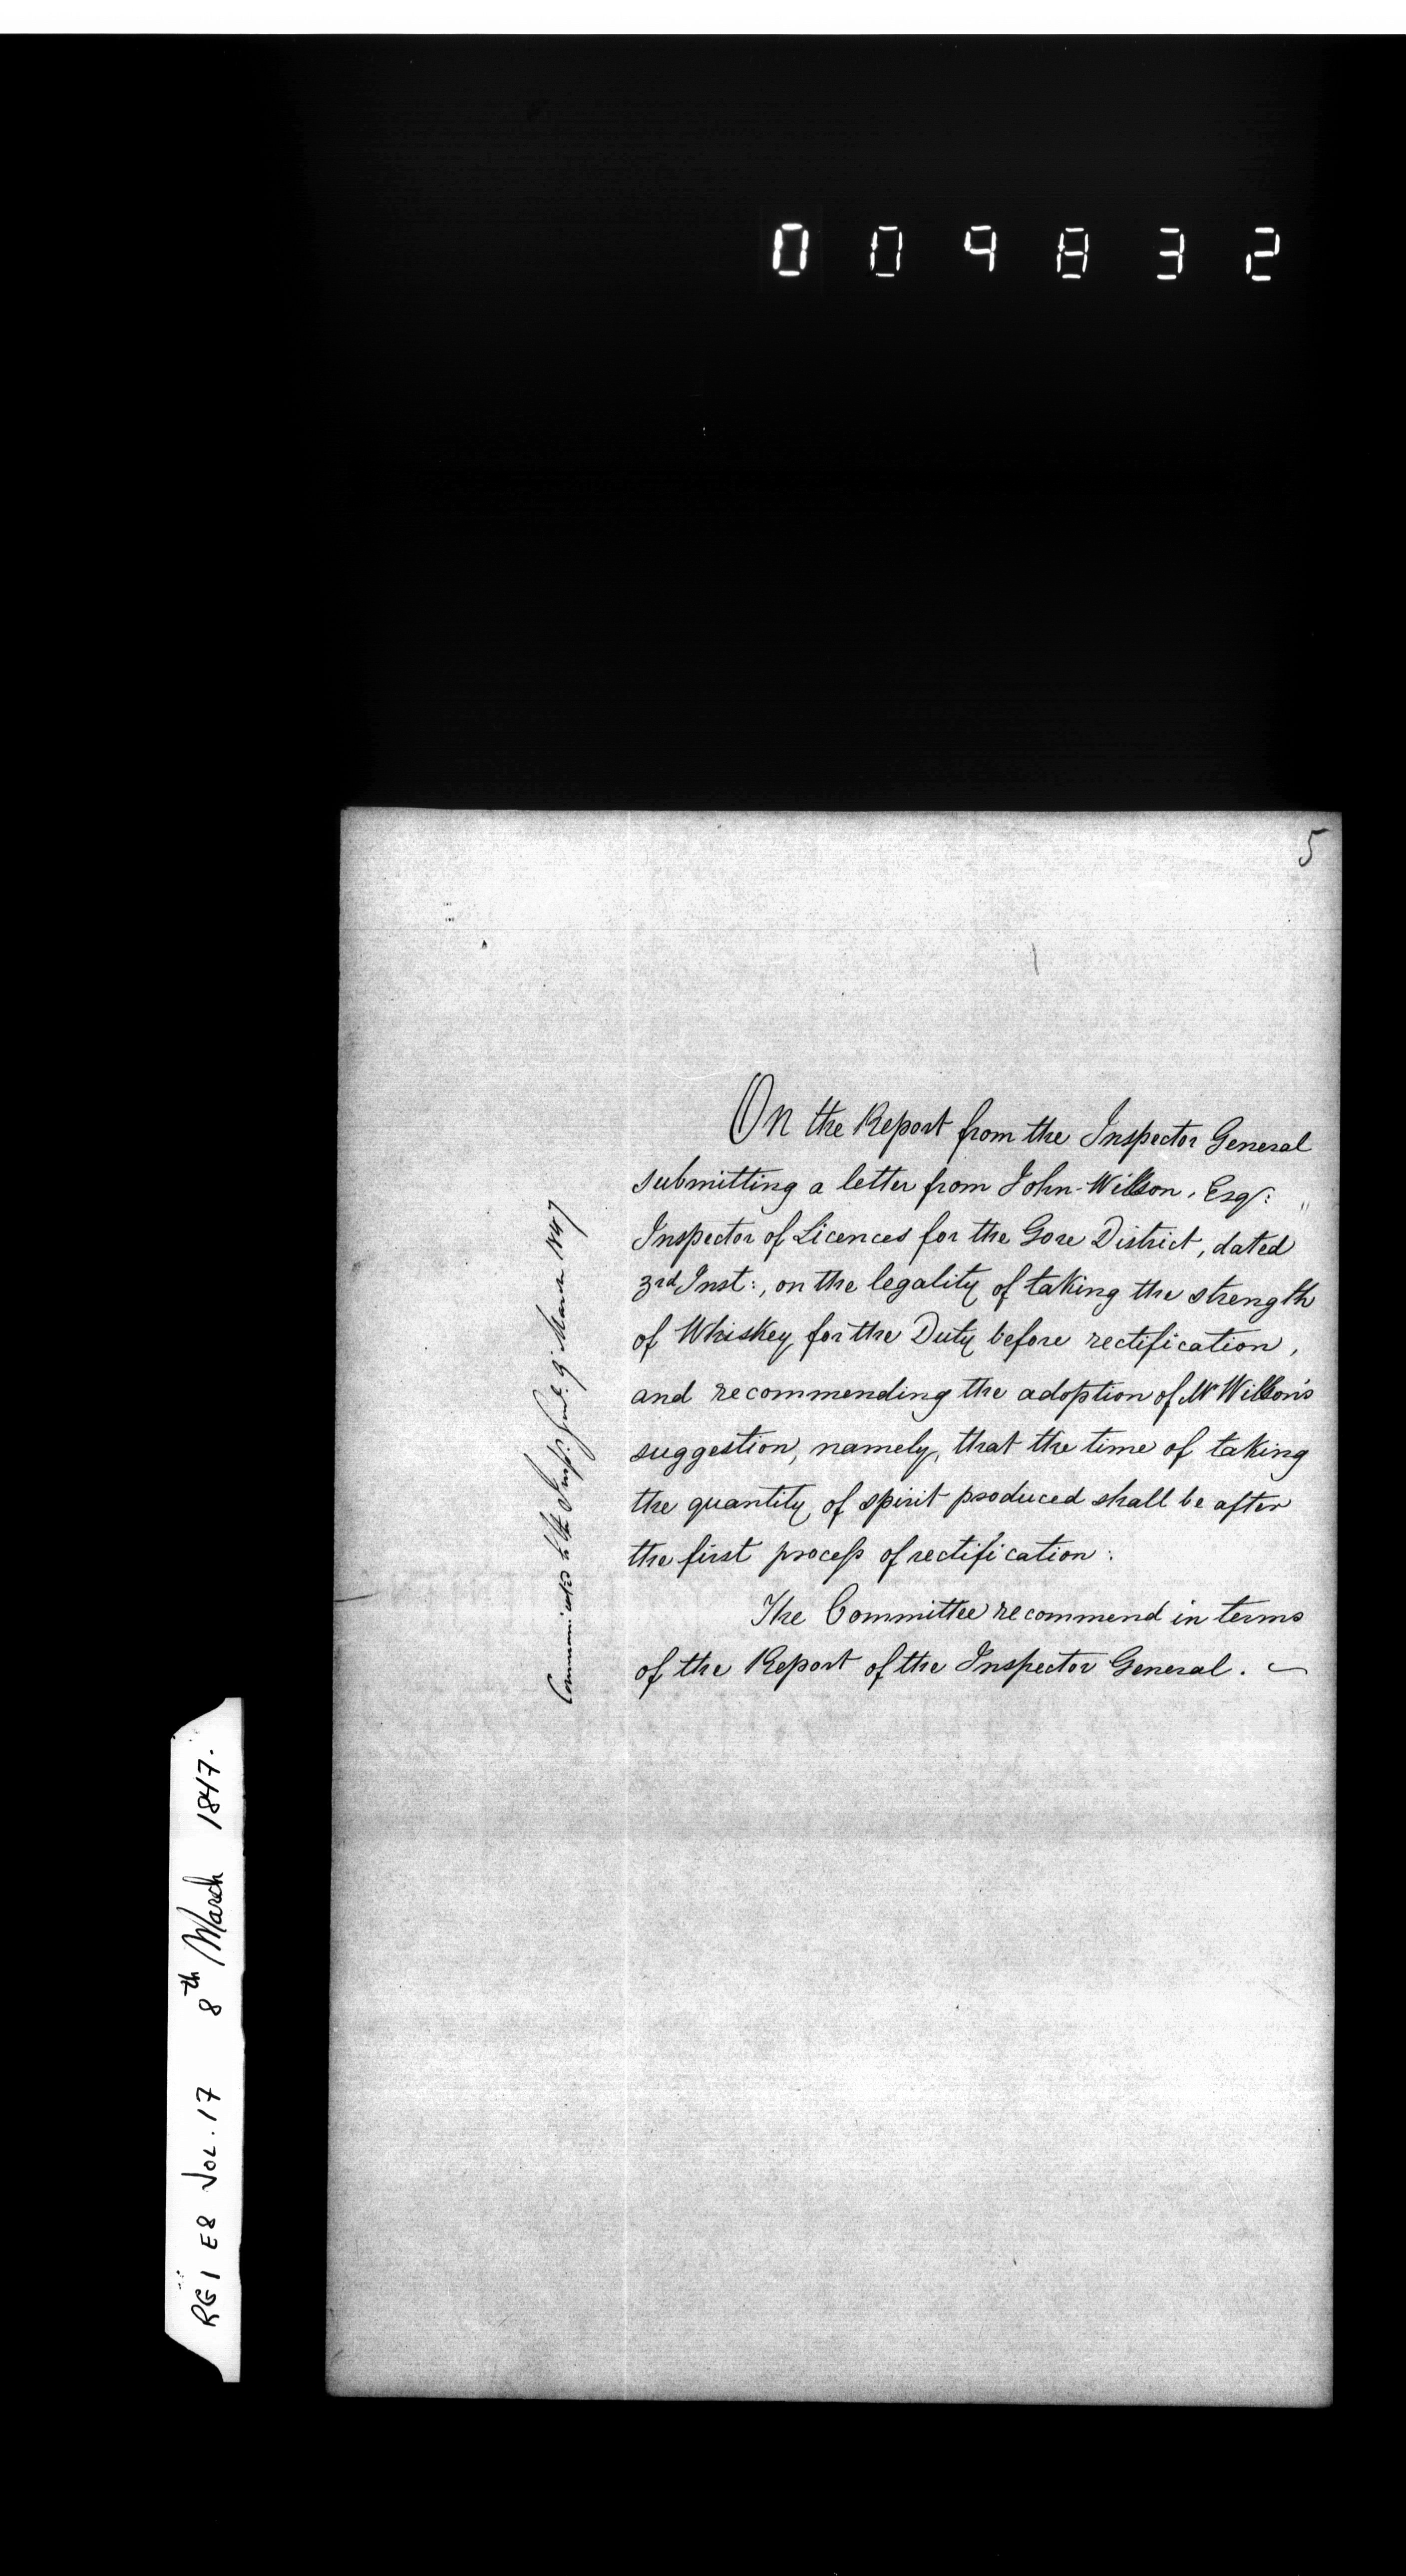 009832
5
On the Report from the Inspector General
submitting a letter from John Willson, Esqr:
Inspector of Licences for the Gore District, dated
3rd Inst:, on the legality of taking the strength
of Whiskey for the Duty before rectification,
and recommending the adoption of Mr Willson's
suggestion, namely, that the time of taking
the quantity of spirit produced shall be after
the first process of rectification:
The Committee recommend in terms
of the Report of the Inspector General.
Communicated to the Insp. Genl. 9 March 1847
RG 1 E8 VOL. 17 8th March 1847.